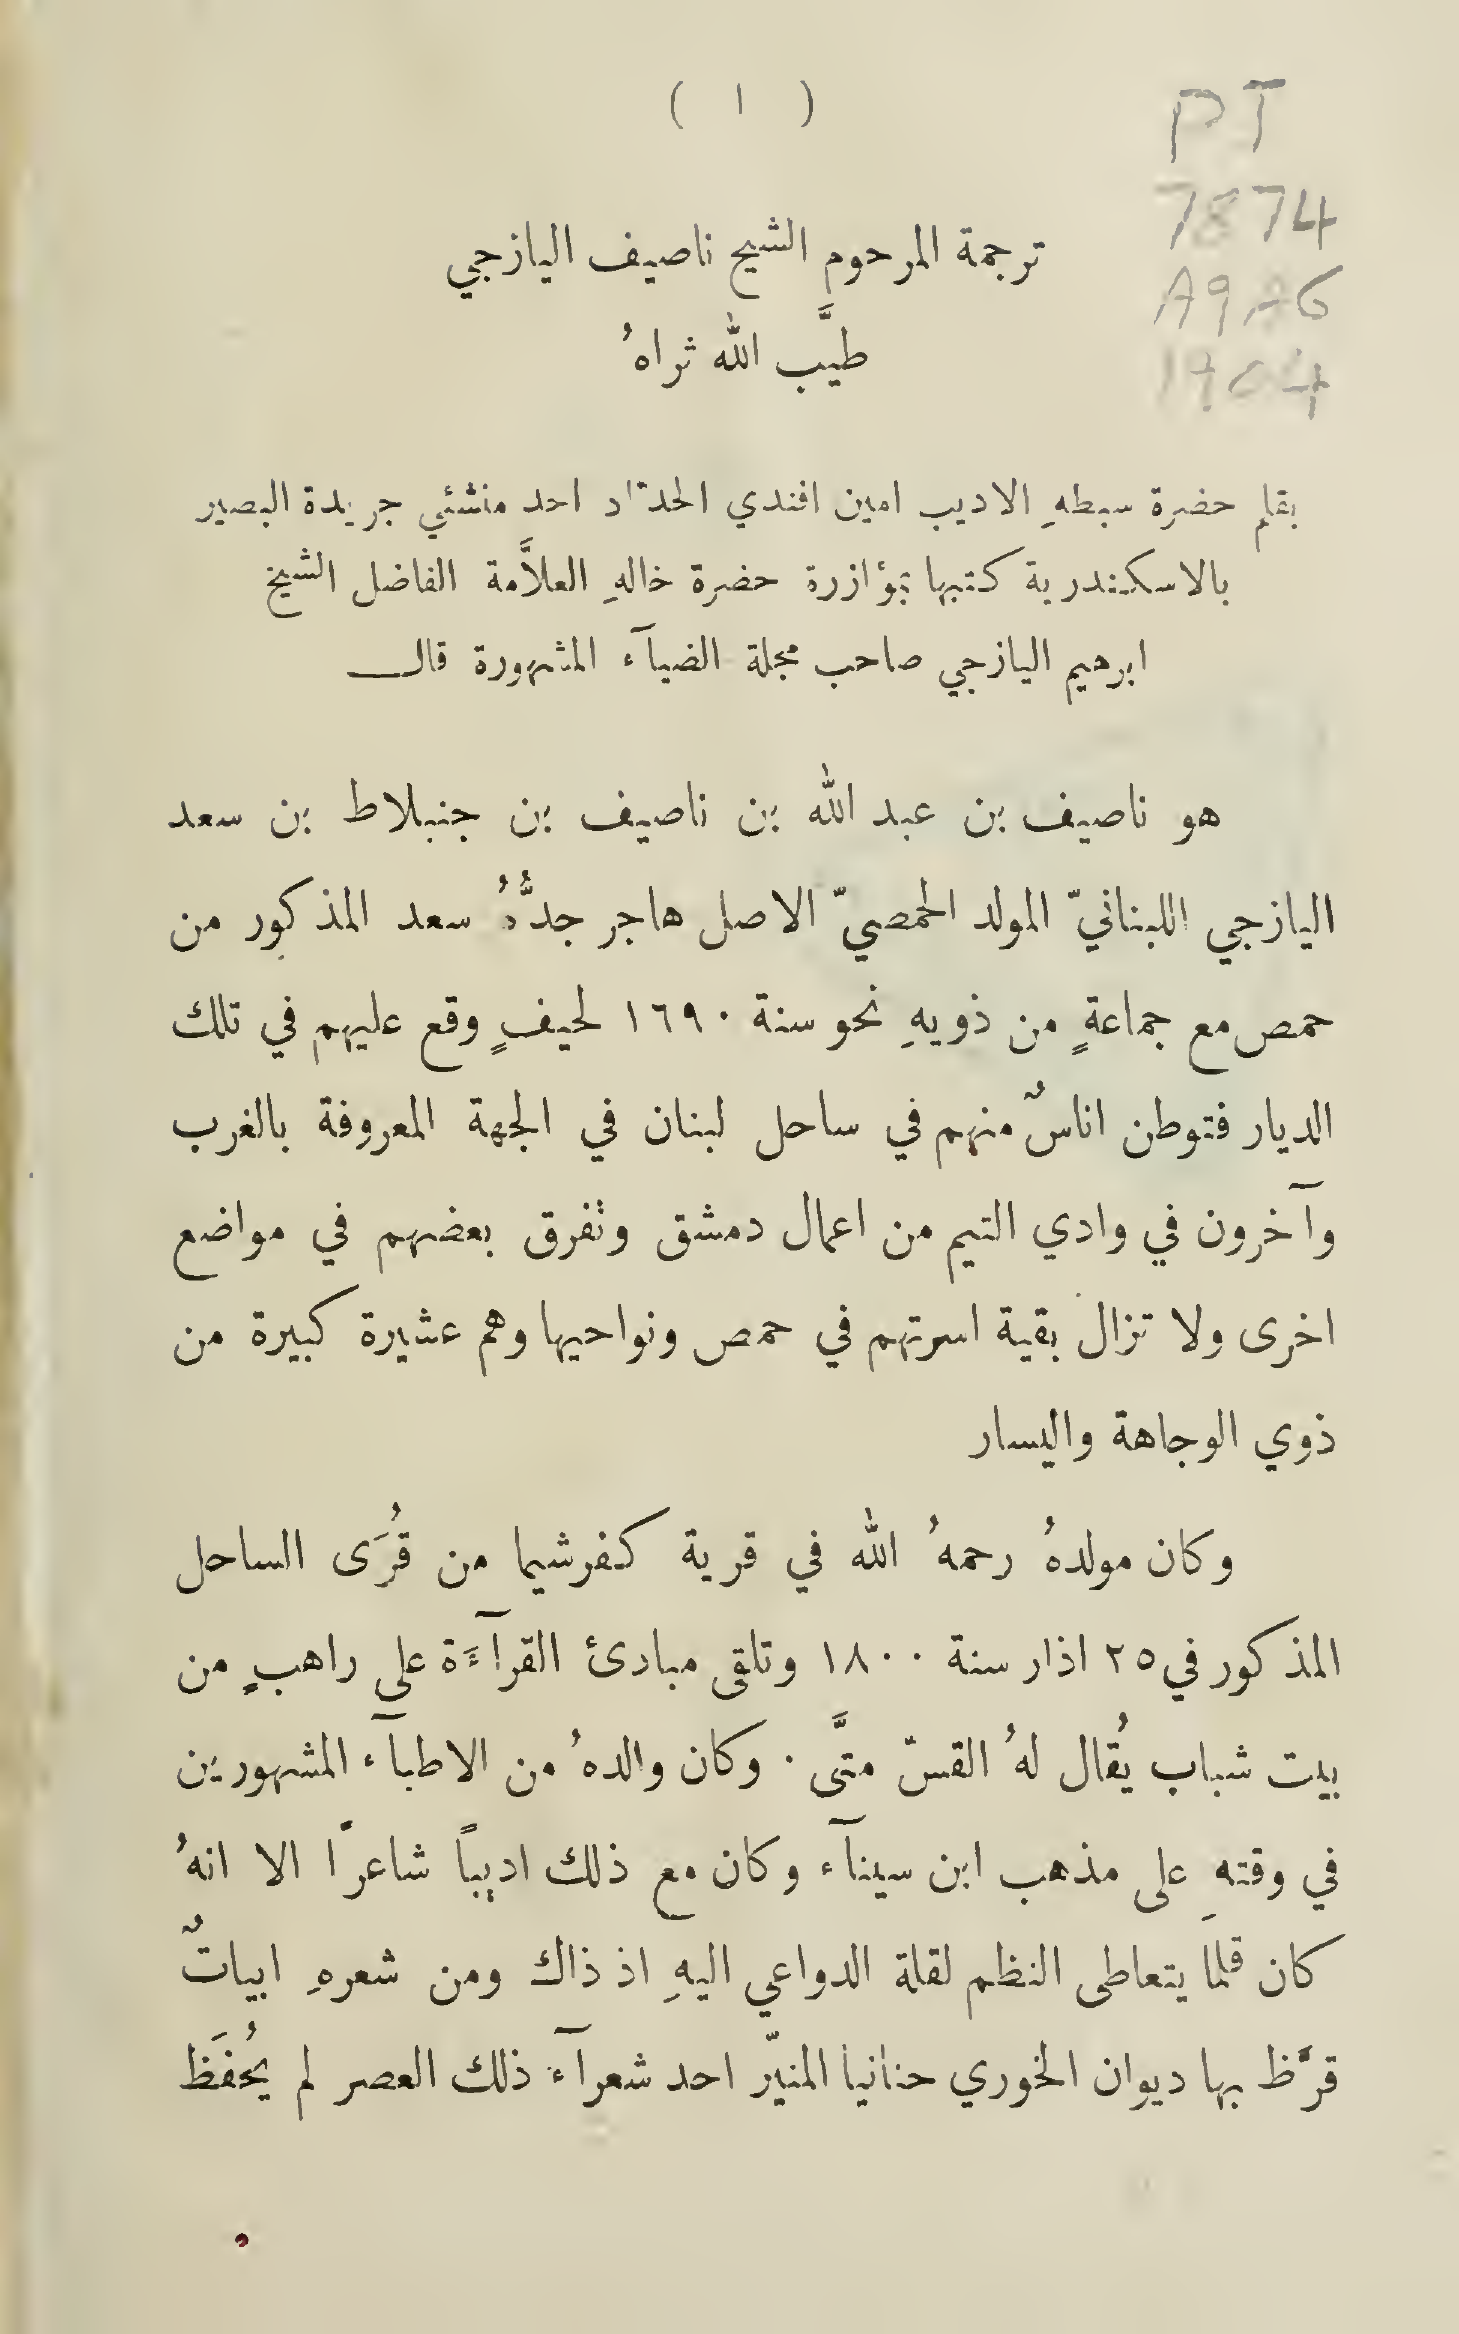 ( ١ )
PJ
7874
A9A6
1904
ترجمة المرحوم الشيخ ناصيف اليازجي
طيَّب الله ثراهُ
بقلم حضرة سبطهِ الاديب امين افندي الحدّاد احد منشئي جريدة البصير
بالاسكندرية كتبها بمؤازرة حضرة خالهِ العلاَّمة الفاضل الشيخ
ابرهيم اليازجي صاحب مجلة الضيآء المشهورة قال
هو ناصيف بن عبد الله بن ناصيف بن جنبلاط بن سعد
اليازجي اللبنانيّ المولد الحمصيّ الاصل هاجر جدُّهُ سعد المذكور من
حمص مع جماعةٍ من ذويهِ نحو سنة ١٦٩٠ لحيفٍ وقع عليهم في تلك
الديار فتوطن اناسٌ منهم في ساحل لبنان في الجهة المعروفة بالغرب
وآخرون في وادي التيم من اعمال دمشق وتفرق بعضهم في مواضع
اخرى ولا تزال بقية اسرتهم في حمص ونواحيها وهم عشيرة كبيرة من
ذوي الوجاهة واليسار
وكان مولدهُ رحمهُ الله في قرية كفرشيما من قُرَى الساحل
المذكور في ٢٥ اذار سنة ١٨٠٠ وتلقى مبادئ القرآءَة على راهبٍ من
بيت شباب يُقال لهُ القسّ متَّى . وكان والدهُ من الاطبآء المشهورين
في وقتهِ على مذهب ابن سينآء وكان مع ذلك اديباً شاعرًا الا انهُ
كان قلما يتعاطى النظم لقلة الدواعي اليهِ اذ ذاك ومن شعرهِ ابياتٌ
قرَّظ بها ديوان الخوري حنانيا المنيّر احد شعرآء ذلك العصر لم يُحفَظ